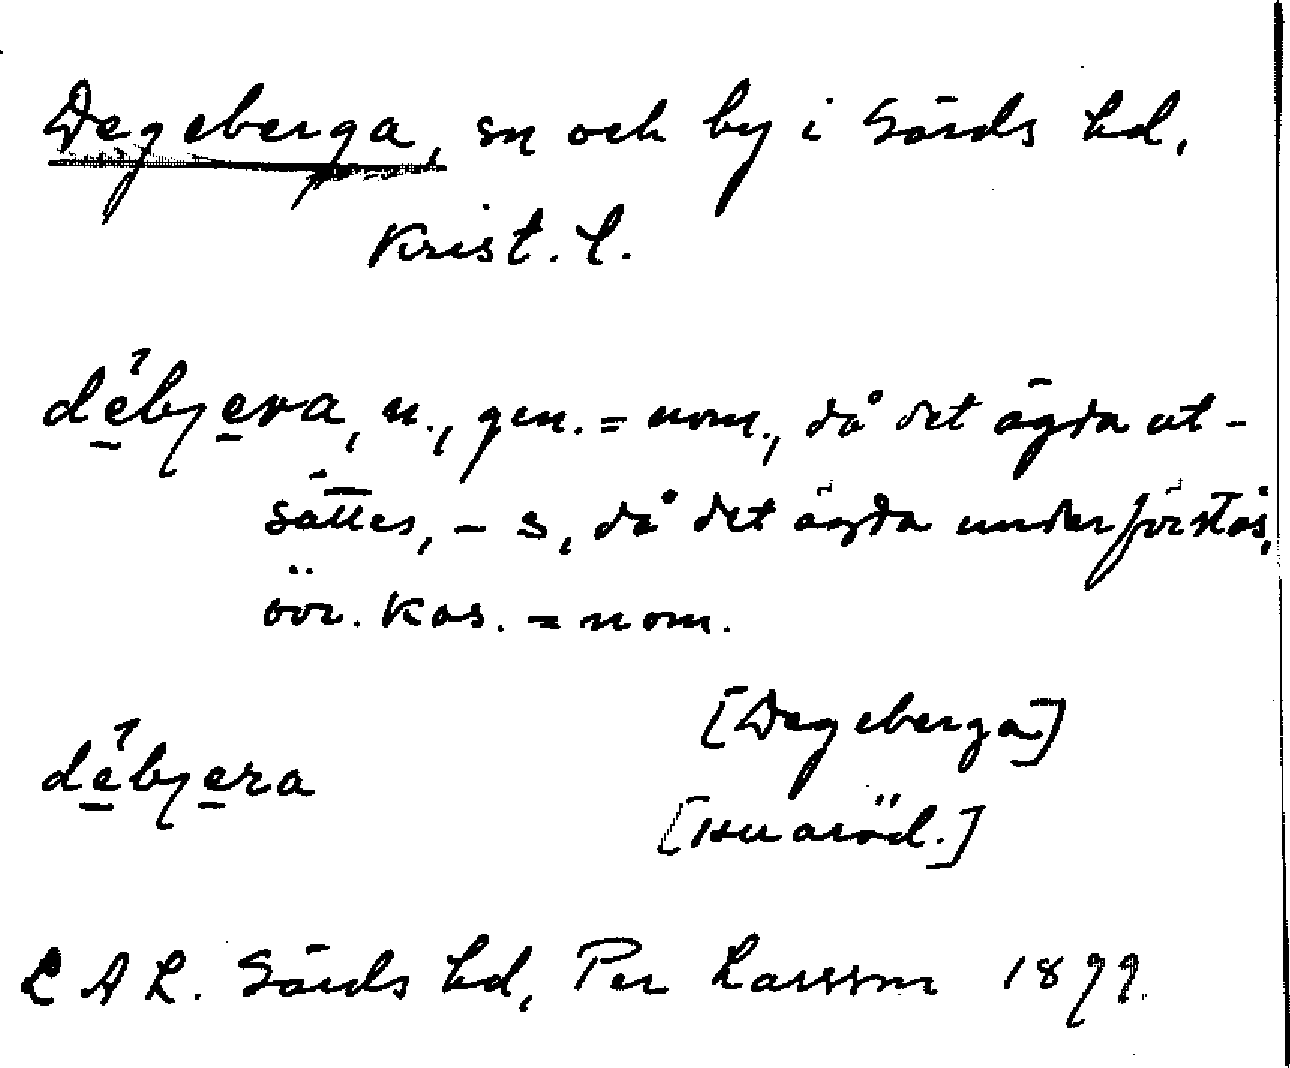 Degeberga, sn och by i Gärds hd.
Krist. l.
débjera, n., gen. = nom., då det ägda ut-
sättes, - s, då det ägda underförstås,
övr. kas. = nom.
débjera [Degeberga]
[Huaröd.]
LAL. Gärds hd, Per Larsson 1899.